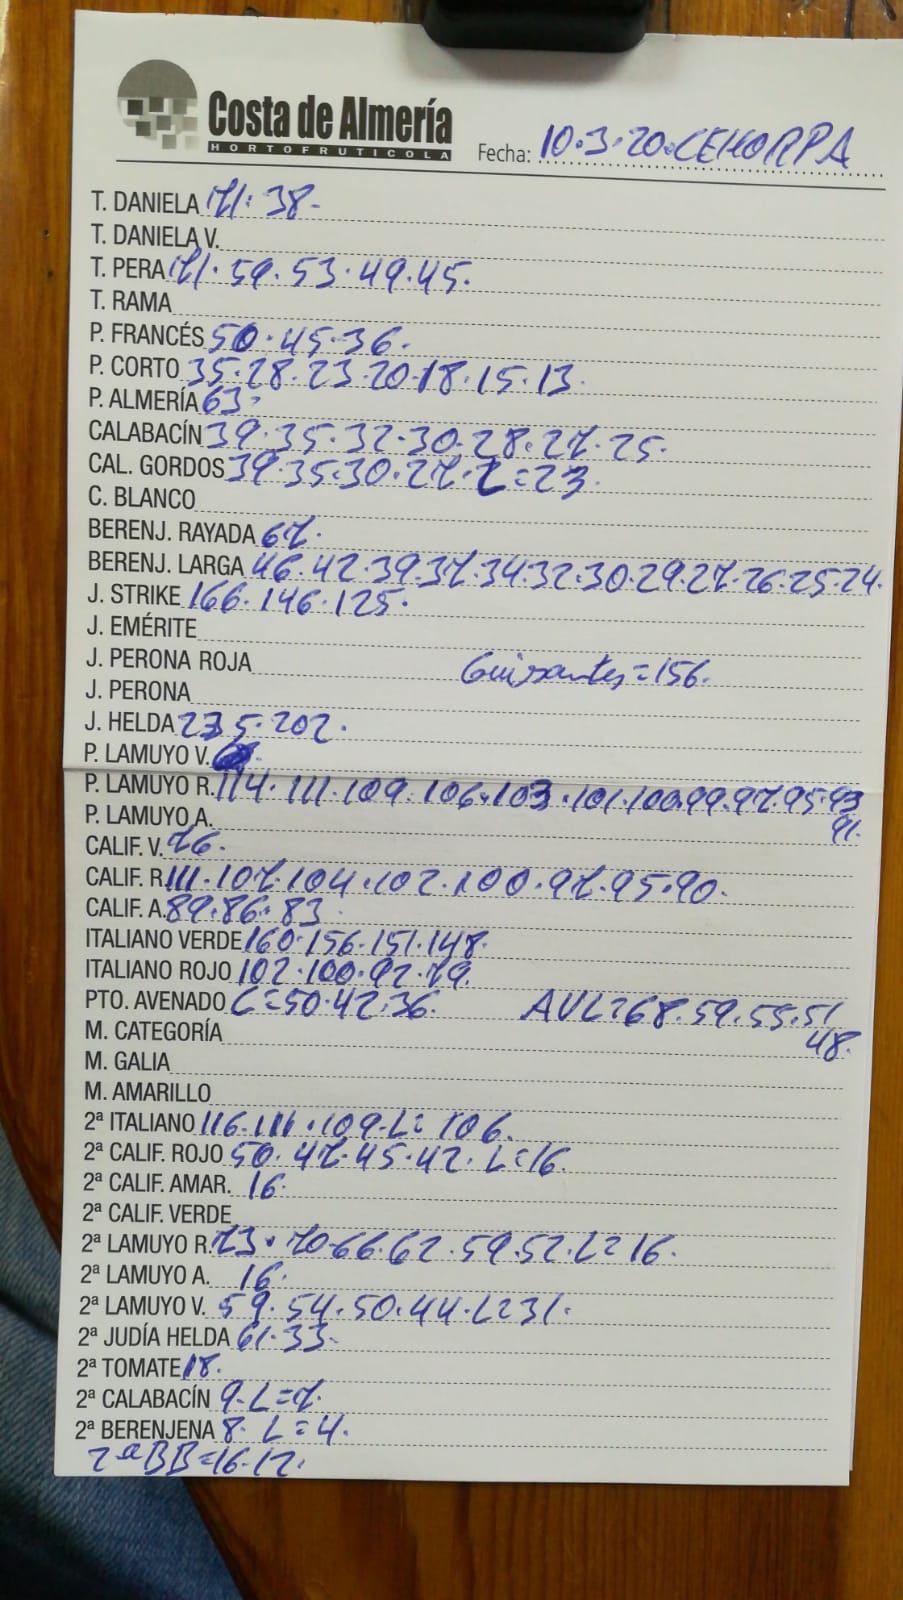 Costa de Almería
HORTOFRUTICOLA
Fecha: 10.3.20.CEHORPA
T. DANIELA 71. 38.
T. DANIELA V.
T. PERA 71. 59. 53. 49. 45.
T. RAMA
P. FRANCÉS 50. 45. 36.
P. CORTO 35. 28. 23 20. 18. 15. 13.
P. ALMERÍA 63.
CALABACÍN 39. 35. 32. 30. 28. 27. 25.
CAL. GORDOS 39. 35. 30. 27. L=23.
C. BLANCO
BERENJ. RAYADA 67.
BERENJ. LARGA 46. 42. 39. 37. 34. 32. 30. 29. 27. 26. 25. 24.
J. STRIKE 166. 146. 125.
J. EMÉRITE
J. PERONA ROJA Guisantes=156.
J. PERONA
J. HELDA 235. 202.
P. LAMUYO V.
P. LAMUYO R. 114. 111. 109. 106. 103. 101. 100. 99. 97. 95. 93
P. LAMUYO A. 91.
CALIF. V. 76.
CALIF. R. 111. 107. 104. 102. 100. 97. 95. 90.
CALIF. A. 89. 86. 83
ITALIANO VERDE 160. 156. 151. 148.
ITALIANO ROJO 102. 100. 92. 79.
PTO. AVENADO C=50. 42. 36. AVL=68. 59. 55. 51
M. CATEGORÍA 48.
M. GALIA
M. AMARILLO
2ª ITALIANO 116. 111. 109. L= 106.
2ª CALIF. ROJO 50. 47. 45. 42. L=16.
2ª CALIF. AMAR. 16.
2ª CALIF. VERDE
2ª LAMUYO R. 73. 70. 66. 62. 59. 52. L=16.
2ª LAMUYO A. 16.
2ª LAMUYO V. 59. 54. 50. 44. L=31.
2ª JUDÍA HELDA 61. 33.
2ª TOMATE 18.
2ª CALABACÍN 9. L=7.
2ª BERENJENA 8. L=4.
2ª BB=16. 12.